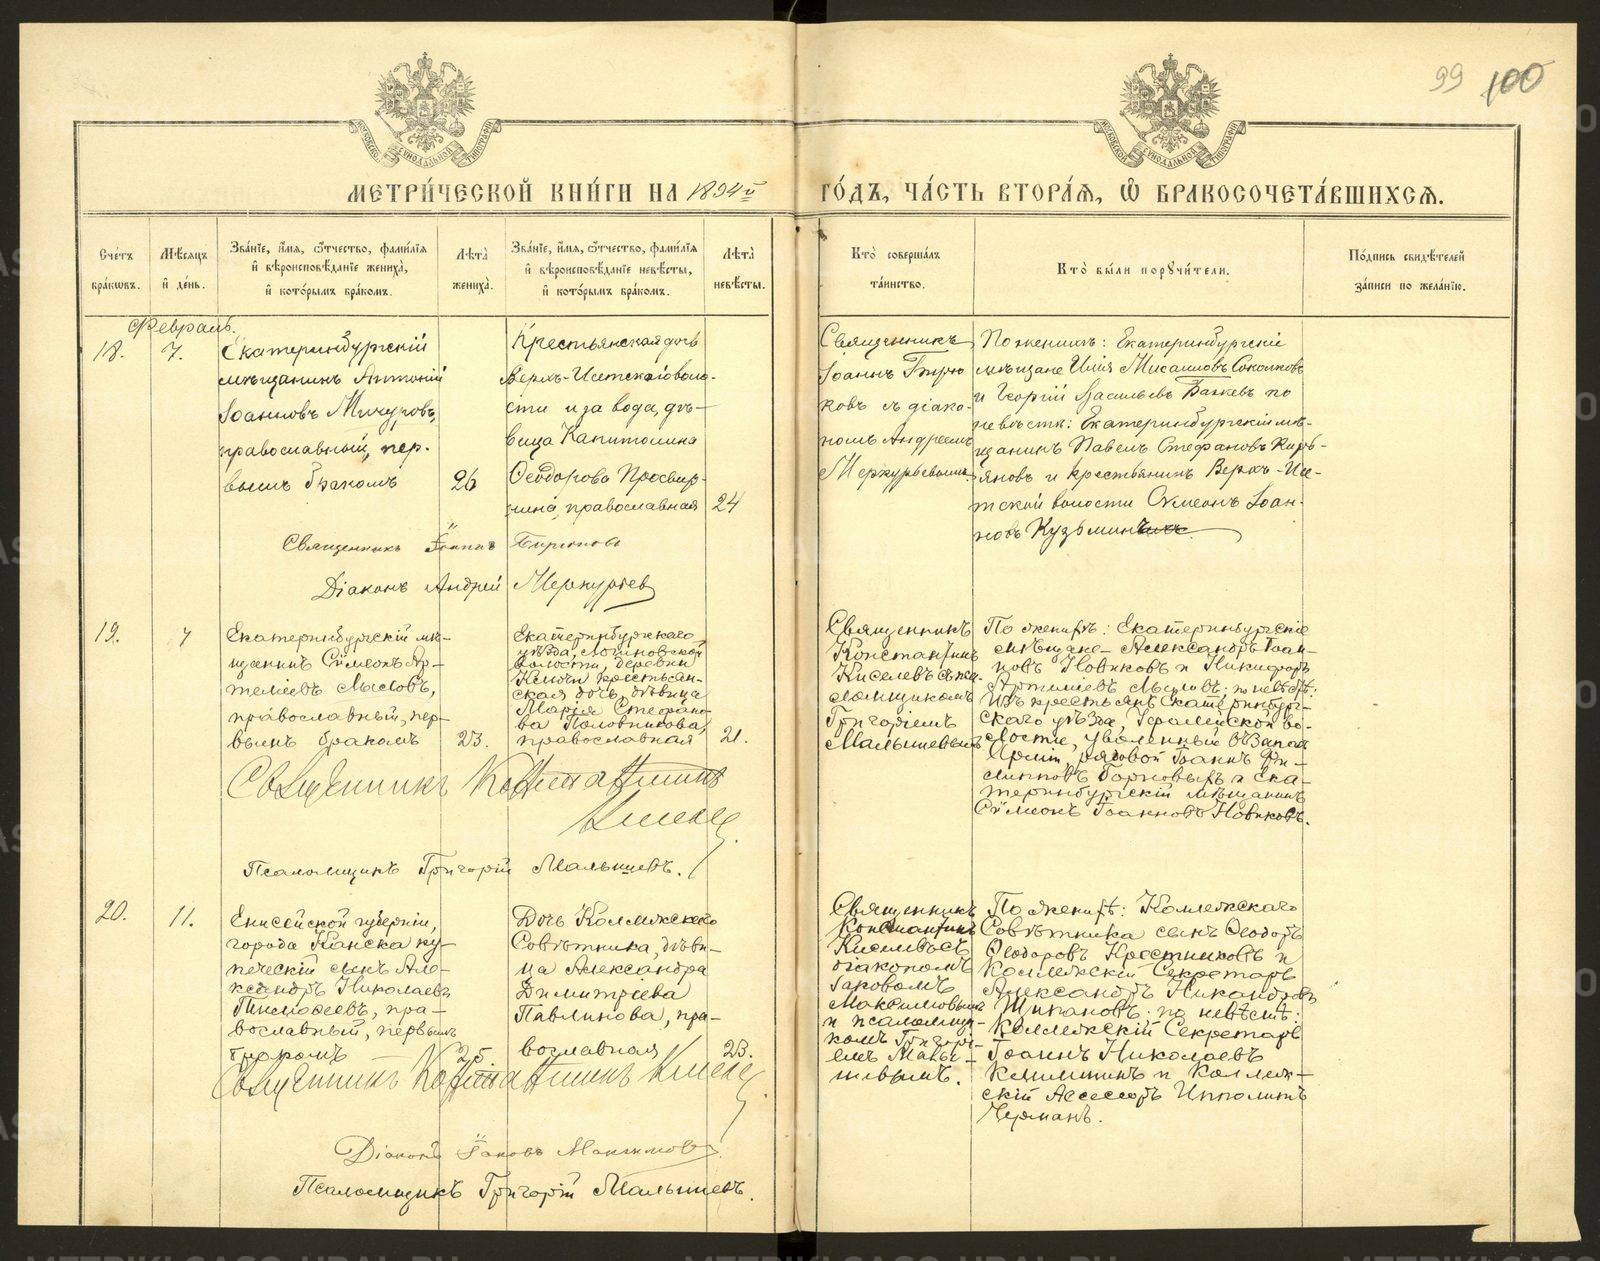 99 100
МЕТРИ́ЧЕСКОЙ КНИ́ГИ НА 1894 й
ГО́ДЪ, ЧА́СТЬ ВТОРА́Я, Ѡ҆ БРАКОСОЧЕТА́ВШИХСѦ.
Сче́тъ
бра́кѡвъ.
Мѣ́сѧцъ
и҆ де́нь.
Зва́нїе, и҆́мѧ, ѻ҆́тчество, фами́лїѧ
и҆ вѣроисповѣ́данїе жениха̀,
и҆ кото́рымъ бра́комъ.
Лѣ́та
жениха̀.
Зва́нїе, и҆́мѧ, ѻ҆́тчество, фами́лїѧ
и҆ вѣроисповѣ́данїе невѣ́сты,
и҆ кото́рымъ бра́комъ.
Лѣ́та
невѣ́сты.
Кто̀ соверша́лъ
та́инство.
Кто̀ бы́ли порꙋчи́тели.
По́дпись свидѣ́телей
за́писи по жела́нїю.
Февраль.
18.
7.
Екатеринбургскій
мѣщанинъ Антоній
Іоанновъ Мичуровъ,
православный, пер-
вымъ бракомъ
26
Крестьянская дочь
Верхъ-Исетскаго воло-
сти и завода, дѣ-
вица Капитолина
Ѳеодорова Просвир-
нина, православная
24
Священникъ
Іоаннъ Бирю
ковъ съ діако-
номъ Андреемъ
Меркурьевымъ.
По женихѣ: Екатеринбургскіе
мѣщане Илія Мисаиловъ Соколовъ
и Георгій Васильевъ Бажевъ по
невѣстѣ: Екатеринбургскій мѣ-
щанинъ Павелъ Стефановъ Кирь-
яновъ и крестьянинъ Верхъ-Исе-
тской волости Симеонъ Іоан-
новъ Кузьмин
Священникъ Іоаннъ Бирюковъ
Діаконъ Андрей Меркурьев
19.
7
Екатеринбургскій мѣ-
щанинъ Сѵмеонъ Ар-
теміевъ Мысовъ,
православный, пер-
вымъ бракомъ
23.
Екатеринбургскаго
уѣзда, Логиновской
волости, деревни
Ключи крестьян-
ская дочь, дѣвица
Марія Стефано-
ва Половникова,
православная
21.
Священникъ
Константинъ
Киселевъ съ пса-
ломщикомъ
Григоріемъ
Малышевымъ
По женихѣ: Екатеринбургскіе
мѣщане Александръ Іоан-
новъ Новиковъ и Никифоръ
Артеміевъ Мысовъ: по невѣстѣ:
Изъ крестьянъ Екатеринбург-
скаго уѣзда, во-
лости, уволенный въ запас
Арміи рядовой Іоаннъ Фи-
липповъ и Ека-
теринбургскій мѣщанинъ
Сѵмеонъ Іоанновъ Новиковъ.
Священникъ Константинъ
Киселевъ
Псаломщикъ Григорій Малышевъ.
20.
11.
Енисейской губерніи,
города Канска ку-
печескій сынъ Але-
ксандръ Николаевъ
Тимоѳеевъ, пра-
вославный, первымъ
бракомъ
25.
Дочь Коллежскаго
Совѣтника, дѣви-
ца Александра
Димитріева
Павлинова, пра-
вославная
23.
Священникъ
Константинъ
Киселевъ съ
діакономъ
Іаковомъ
Максимовымъ
и псаломщи-
комъ Григорі-
емъ Малы-
шевымъ.
По женихѣ: Коллежскаго
Совѣтника сынъ Ѳеодоръ
Ѳеодоровъ Крестниковъ и
Коллежскій Секретарь
Александръ Никандровъ
по невѣстѣ:
Коллежскій Секретарь
Іоаннъ Николаевъ
и Коллеж-
скій Ассесоръ Ипполитъ
Черманъ.
Священникъ Константинъ Киселев
Діаконъ Іаковъ Максимовъ.
Псаломщикъ Григорій Малышевъ.